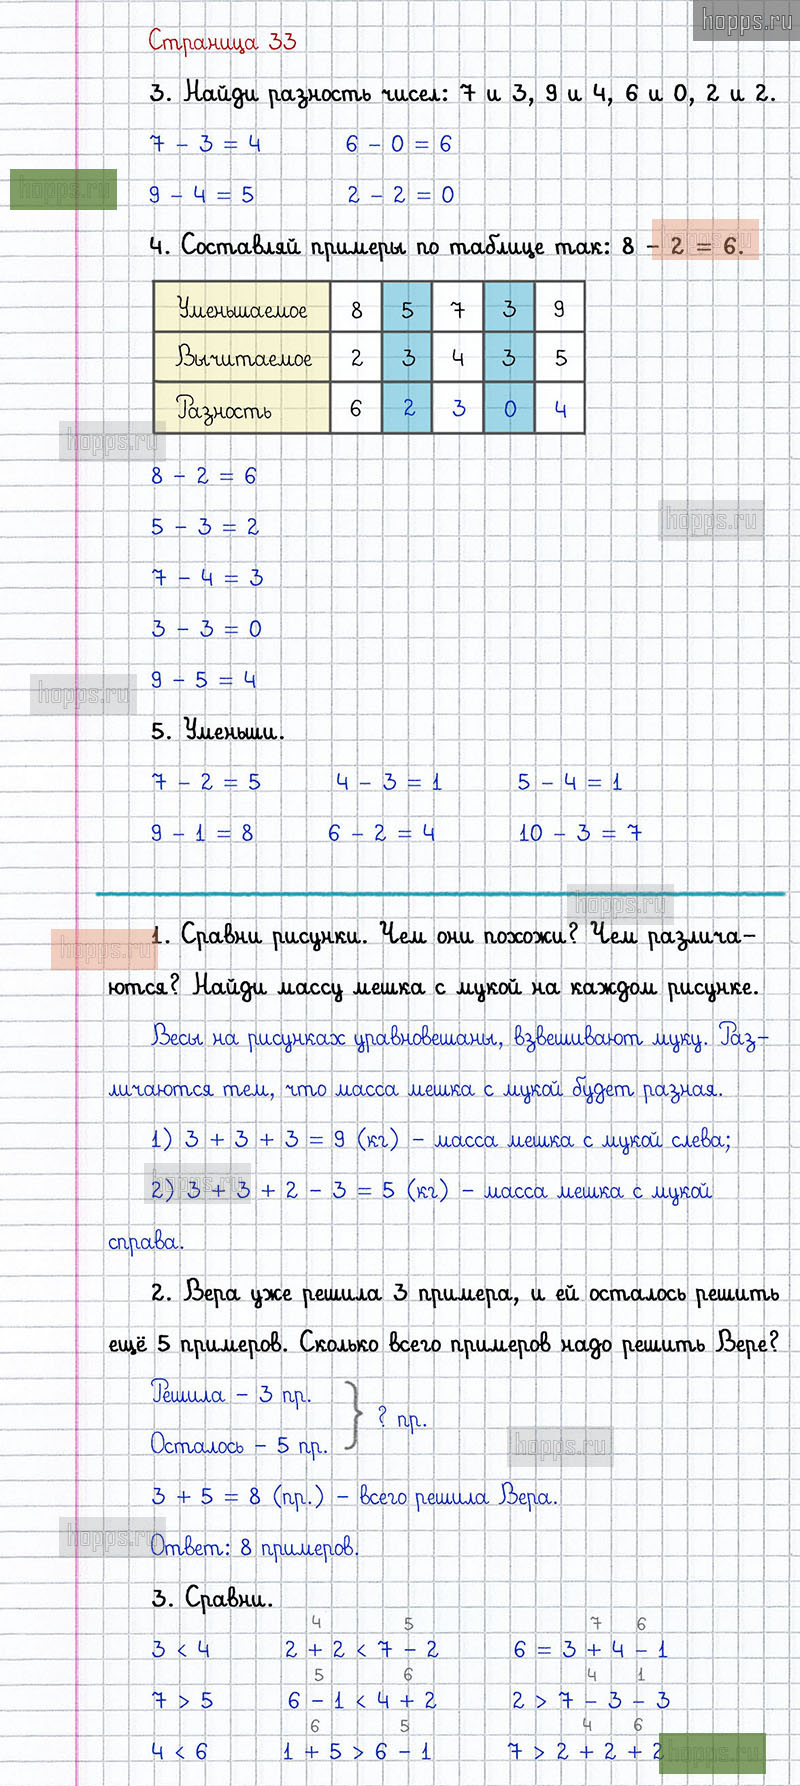 hopps.ru
Страница 33
3. Найди разность чисел: 7 и 3, 9 и 4, 6 и 0, 2 и 2.
7 - 3 = 4 6 - 0 = 6
hopps.ru
9 - 4 = 5 2 - 2 = 0
hopps.ru
4. Составляй примеры по таблице так: 8 - 2 = 6.
Уменьшаемое 8 5 7 3 9
Вычитаемое 2 3 4 3 5
Разность 6 2 3 0 4
hopps.ru
8 - 2 = 6
hopps.ru
5 - 3 = 2
7 - 4 = 3
3 - 3 = 0
hopps.ru
9 - 5 = 4
5. Уменьши.
7 - 2 = 5 4 - 3 = 1 5 - 4 = 1
9 - 1 = 8 6 - 2 = 4 10 - 3 = 7
hopps.ru
hopps.ru
1. Сравни рисунки. Чем они похожи? Чем различа-
ются? Найди массу мешка с мукой на каждом рисунке.
Весы на рисунках уравновешаны, взвешивают муку. Раз-
личаются тем, что масса мешка с мукой будет разная.
1) 3 + 3 + 3 = 9 (кг) - масса мешка с мукой слева;
hopps.ru
2) 3 + 3 + 2 - 3 = 5 (кг) - масса мешка с мукой
справа.
2. Вера уже решила 3 примера, и ей осталось решить
ещё 5 примеров. Сколько всего примеров надо решить Вере?
Решила - 3 пр.
? пр.
Осталось - 5 пр.
hopps.ru
3 + 5 = 8 (пр.) - всего решила Вера.
hopps.ru
Ответ: 8 примеров.
3. Сравни.
4 5 7 6
3 < 4 2 + 2 < 7 - 2 6 = 3 + 4 - 1
5 6 4 1
7 > 5 6 - 1 < 4 + 2 2 > 7 - 3 - 3
6 5 4 6
4 < 6 1 + 5 > 6 - 1 7 > 2 + 2 + 2
hopps.ru